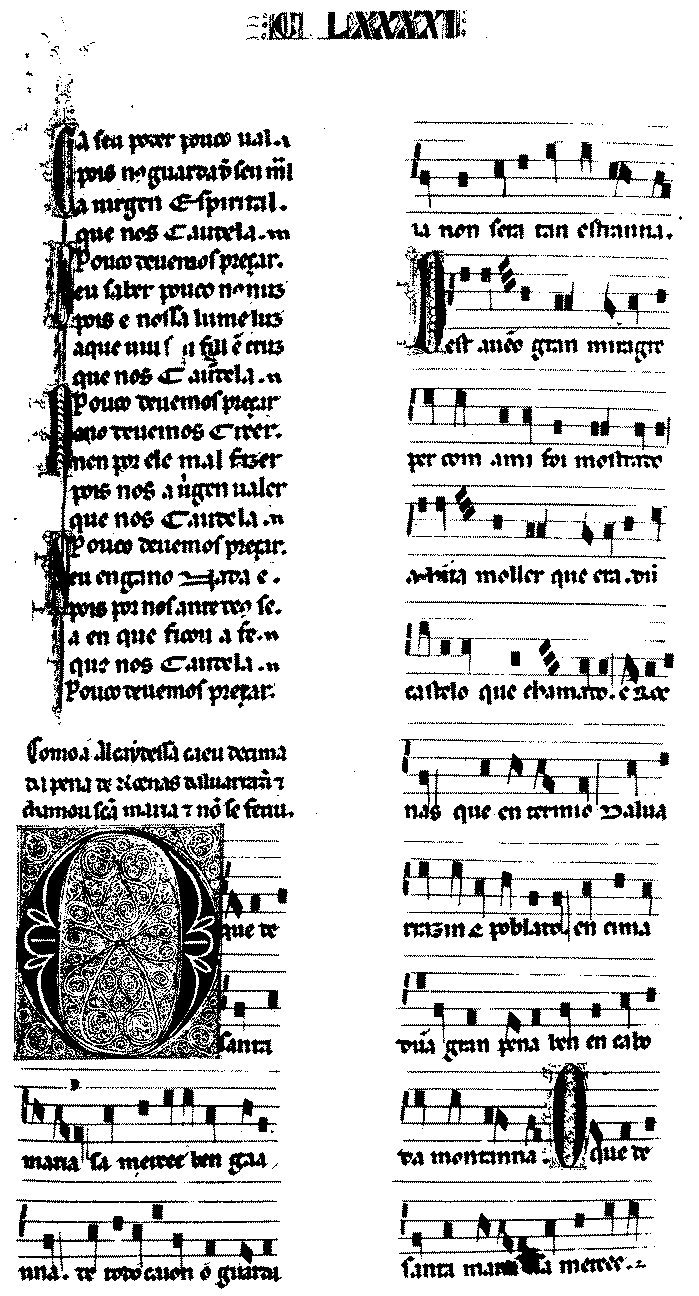 C LXXXXI
Ca seu poder pouco ual.
pois nos guarda do seu mal
a uirgen Espirital.
que nos Cautela.
Pouco deuemos preçar.
seu saber pouco nonus
pois e nossa lume luz
aquel
que nos Cautela.
Pouco deuemos preçar
que deuemos Creer.
nen por ele mal fazer
pois nos a uirgen ualer
que nos Cautela.
Pouco deuemos preçar.
seu engano nada e.
pois por nos ante deo se.
a en que ficou a fe.
que nos Cautela.
Pouco deuemos preçar.
Como a Alcaydessa caeu decima
da pena de Rodenas dAluarrazin ⁊
chamou scā maria ⁊ nō se feriu.
O que de
santa
maria sa mercee ben gaa
nna. de todo caion o guarda
ia non sera tan estranna.
Dest auēo gran miragre
per com a mi foi mostrado
a hūa moller que era. dun
castelo que chamado. e Rode
nas que en termio Dalua
rrazin e poblado. en cima
dūa gran pena ben en cabo
da montanna. O que de
santa maria sa mercee.